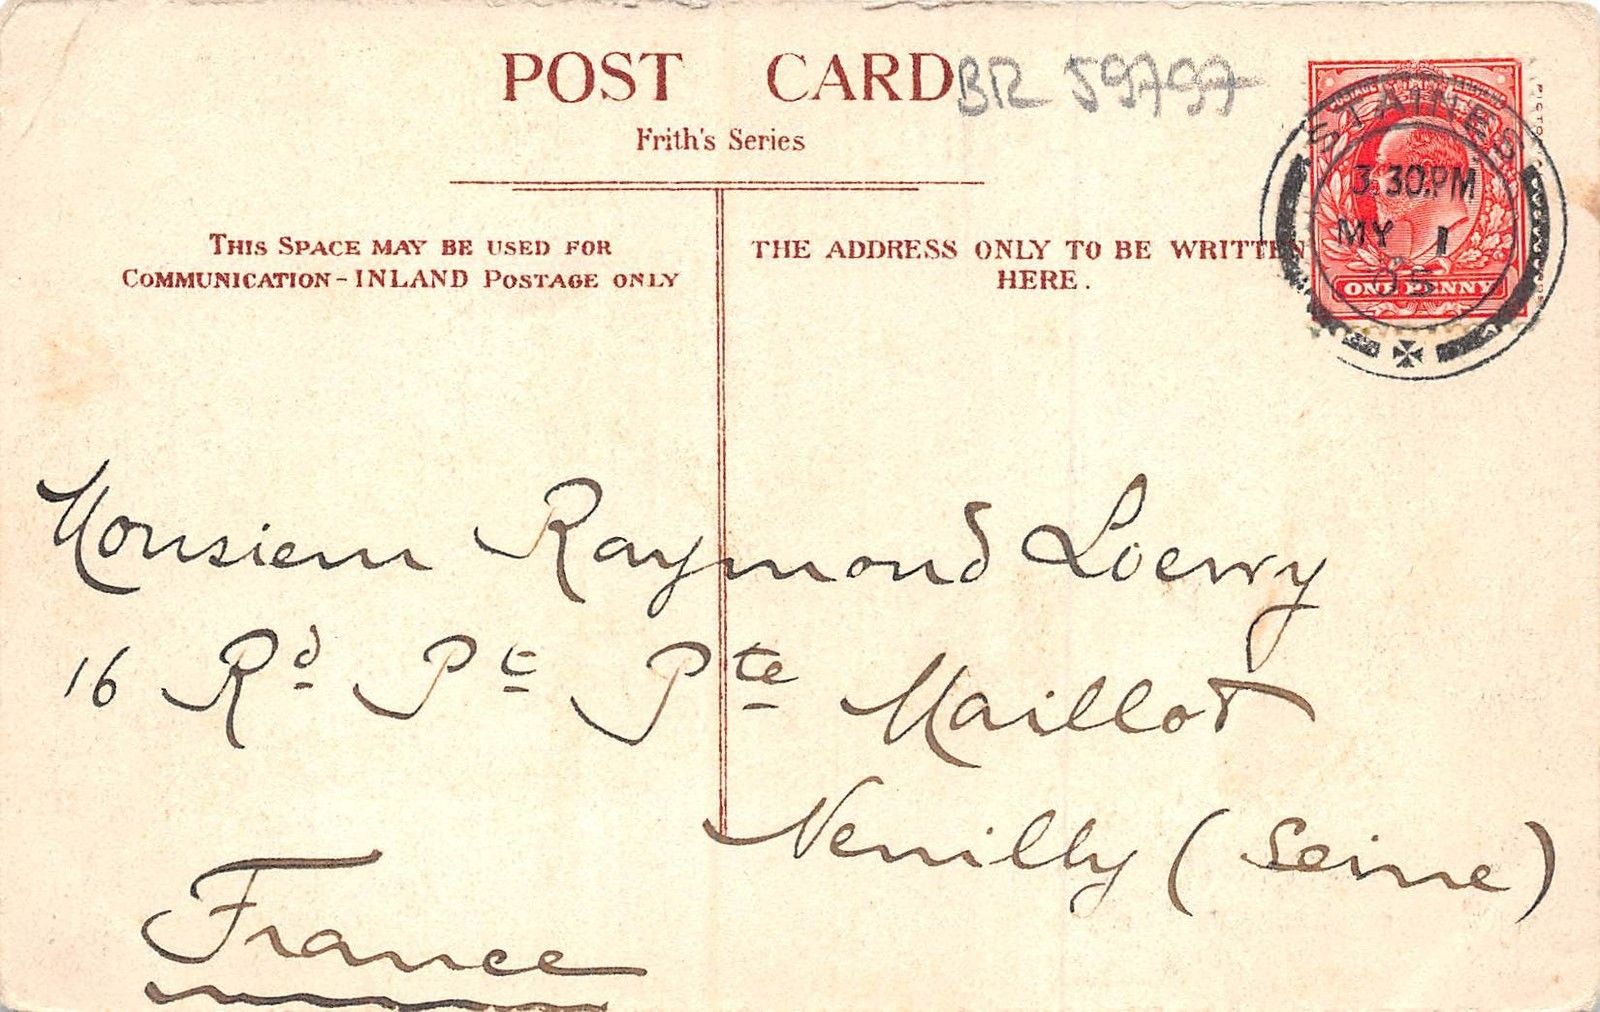 POST CARD
BR 59797
Frith's Series
THIS SPACE MAY BE USED FOR
COMMUNICATION - INLAND POSTAGE ONLY
THE ADDRESS ONLY TO BE WRITTEN
HERE.
STAINES
3.30PM
MY 1
05
ONE PENNY
Monsieur Raymond Loewy
16 Rd Pt Pte Maillot
Neuilly (Seine)
France